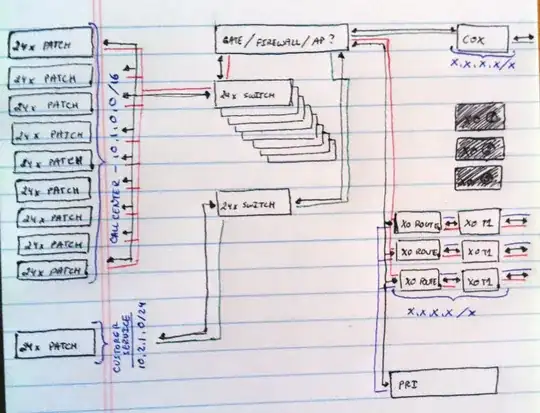 24x PATCH
24x PATCH
24x PATCH
24x PATCH
24x PATCH
24x PATCH
24x PATCH
24x PATCH
24x PATCH
24x PATCH
CALL CENTER - 10.1.0.0/16
CUSTOMER
SERVICE
10.2.1.0/24
GATE/FIREWALL/AP?
24x SWITCH
24x SWITCH
COX
x.x.x.x/x
XO
XO
XO
XO ROUTE
XO T1
XO ROUTE
XO T1
XO ROUTE
XO T1
x.x.x.x/x
PRI